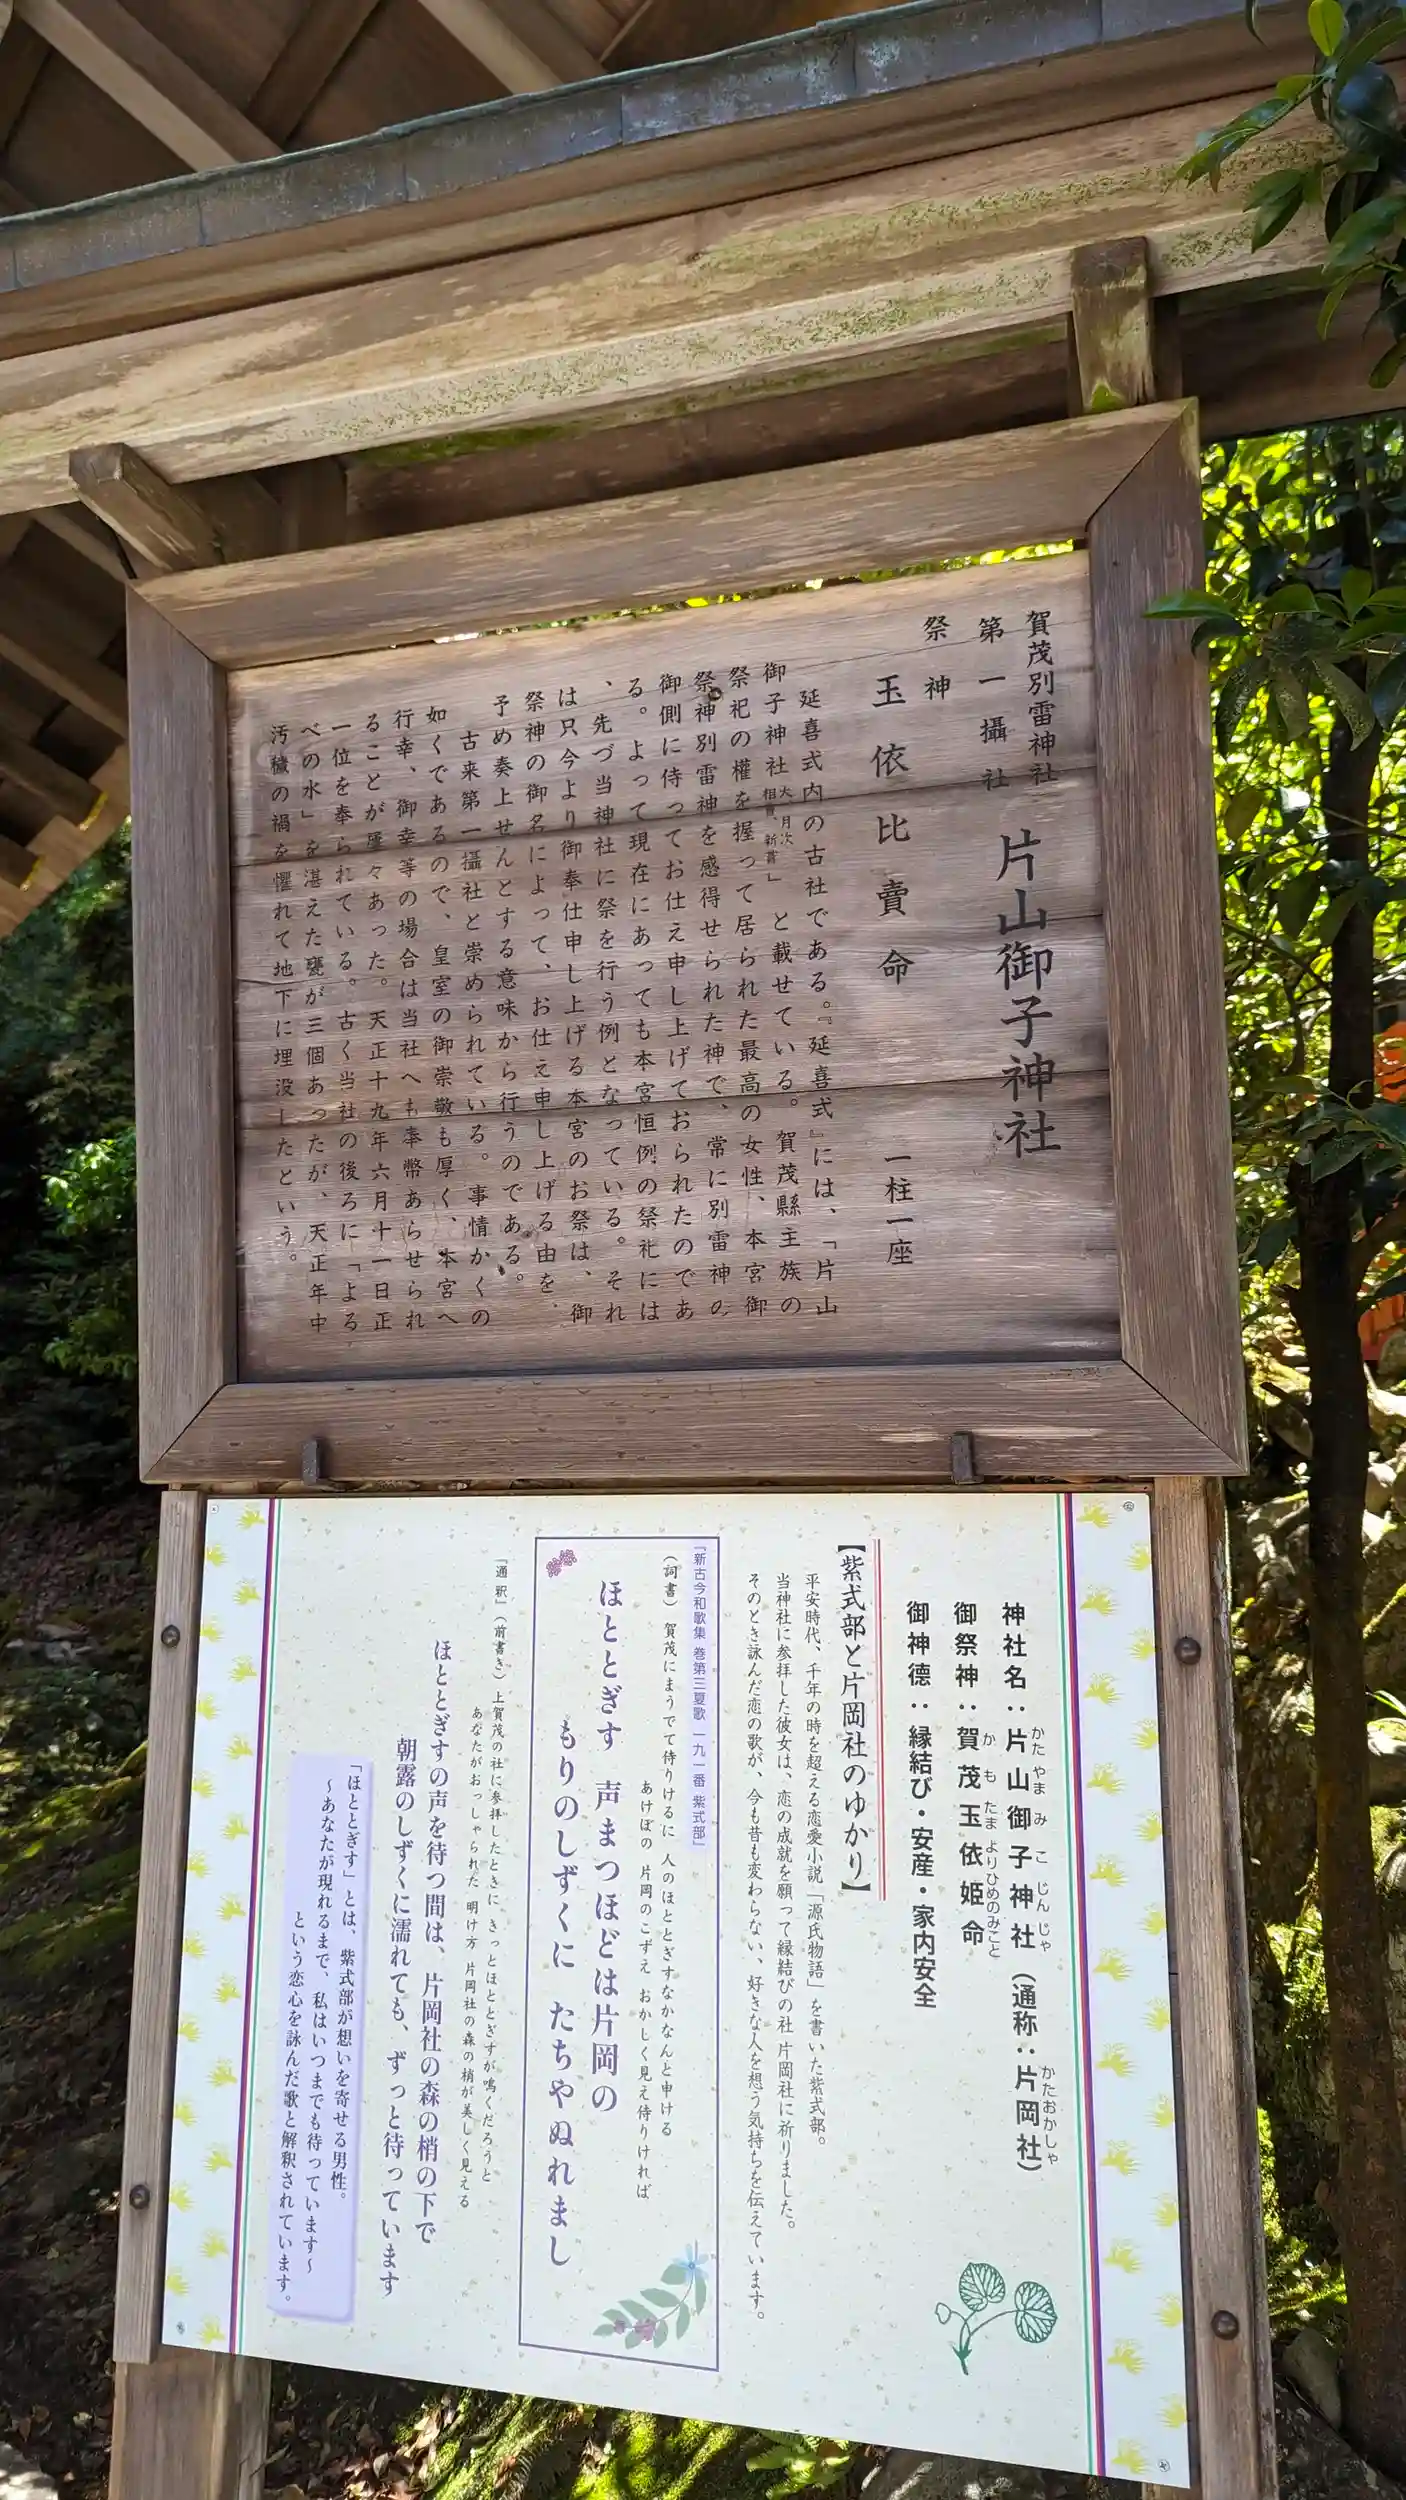 賀茂別雷神社
第一攝社 片山御子神社
祭神
玉依比賣命 一柱一座
延喜式内の古社である。『延喜式』には、「片山
御子神社大、月次相嘗、新嘗」と載せている。賀茂縣主族の
祭祀の權を握って居られた最高の女性、本宮御
祭神別雷神を感得せられた神で、常に別雷神の
御側に侍ってお仕え申し上げておられたのであ
る。よって現在にあっても本宮恒例の祭礼には
、先づ当神社に祭を行う例となっている。それ
は只今より御奉仕申し上げる本宮のお祭は、御
祭神の御名によって、お仕え申し上げる由を、
予め奏上せんとする意味から行うのである。
古来第一攝社と崇められている。事情かくの
如くであるので、皇室の御崇敬も厚く、本宮へ
行幸、御幸等の場合は当社へも奉幣あらせられ
ることが屢々あった。天正十九年六月十一日正
一位を奉られている。古く当社の後ろに「よる
べの水」を湛えた甕が三個あったが、天正年中
汚穢の禍を懼れて地下に埋没したという。
神社名：片山御子神社（通称：片岡社）
かたやまみこじんじゃ かたおかしゃ
御祭神：賀茂玉依姫命
かもたまよりひめのみこと
御神徳：縁結び・安産・家内安全
【紫式部と片岡社のゆかり】
平安時代、千年の時を超える恋愛小説「源氏物語」を書いた紫式部。
当神社に参拝した彼女は、恋の成就を願って縁結びの社 片岡社に祈りました。
そのとき詠んだ恋の歌が、今も昔も変わらない、好きな人を想う気持ちを伝えています。
「新古今和歌集 巻第三夏歌 一九一番 紫式部」
（詞書）賀茂にまうでて侍りけるに 人のほととぎすなかなんと申ける
あけぼの 片岡のこずえ おかしく見え侍りければ
ほととぎす 声まつほどは片岡の
もりのしずくに たちやぬれまし
「通釈」（前書き）上賀茂の社に参拝したときに きっとほととぎすが鳴くだろうと
あなたがおっしゃられた 明け方 片岡社の森の梢が美しく見える
ほととぎすの声を待つ間は、片岡社の森の梢の下で
朝露のしずくに濡れても、ずっと待っています
「ほととぎす」とは、紫式部が想いを寄せる男性。
～あなたが現れるまで、私はいつまでも待っています～
という恋心を詠んだ歌と解釈されています。